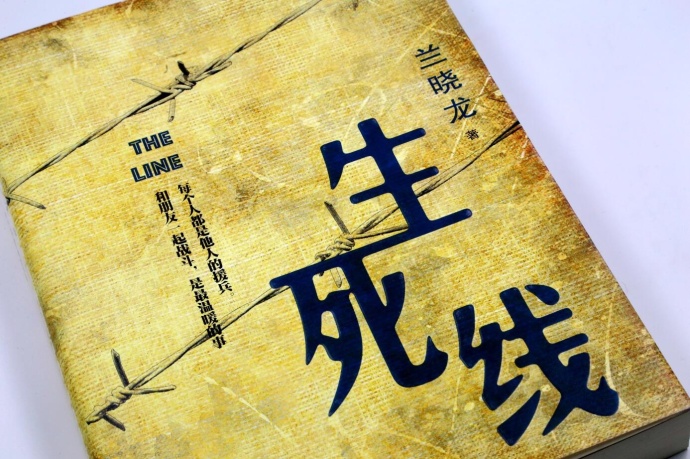 兰晓龙 著
生死线
THE
LINE
每个人都是他人的援兵。
和朋友一起战斗，是最温暖的事